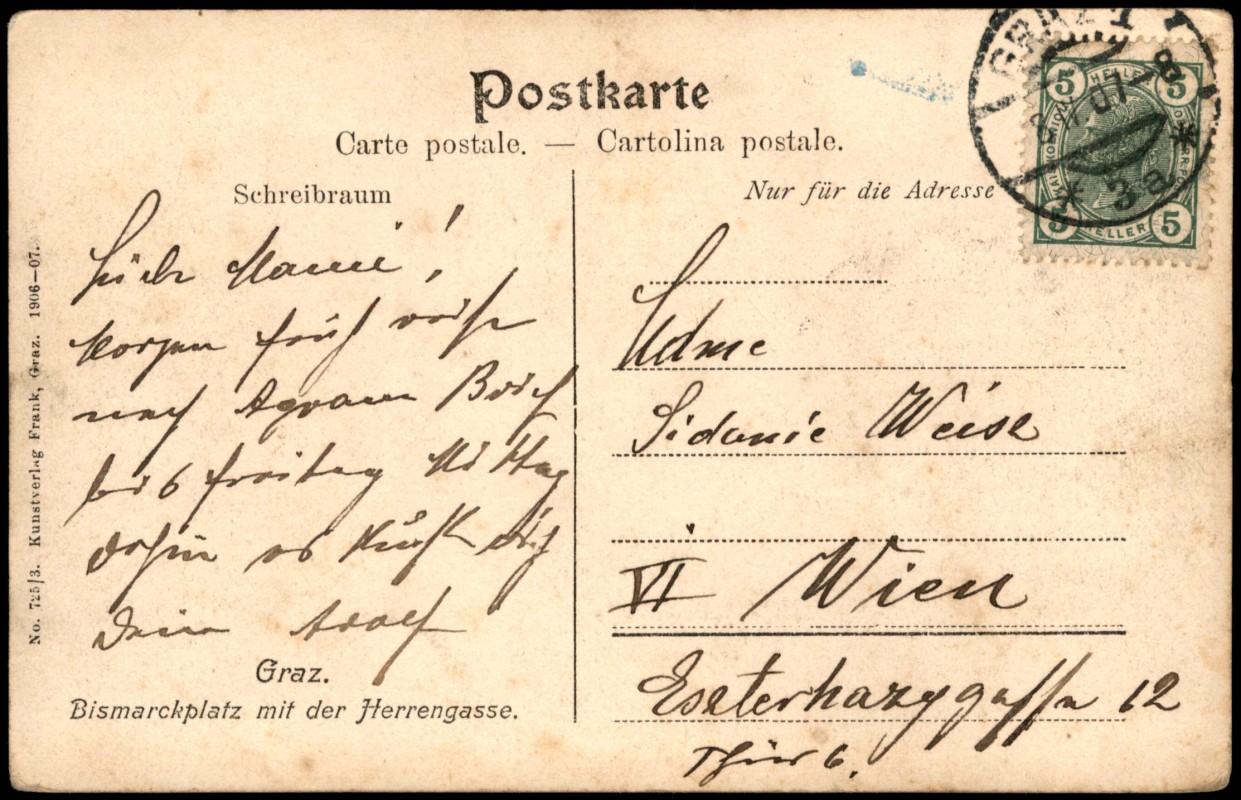 Postkarte
Carte postale. — Cartolina postale.
Schreibraum
Nur für die Adresse
GRAZ 1
07
8
* 3a *
5 HELLER 5
5 HELLER 5
Liebe Mami!
Morgen früh reise
nach Agram Brief
bis 6 freitag Mittag
dahin es küßt dich
Dein Adolf
Graz.
Bismarckplatz mit der Herrengasse.
No. 725/3. Kunstverlag Frank, Graz. 1906—07.
Sidonie Weise
VI Wien
Eszterhazygasse 12
Thür 6.